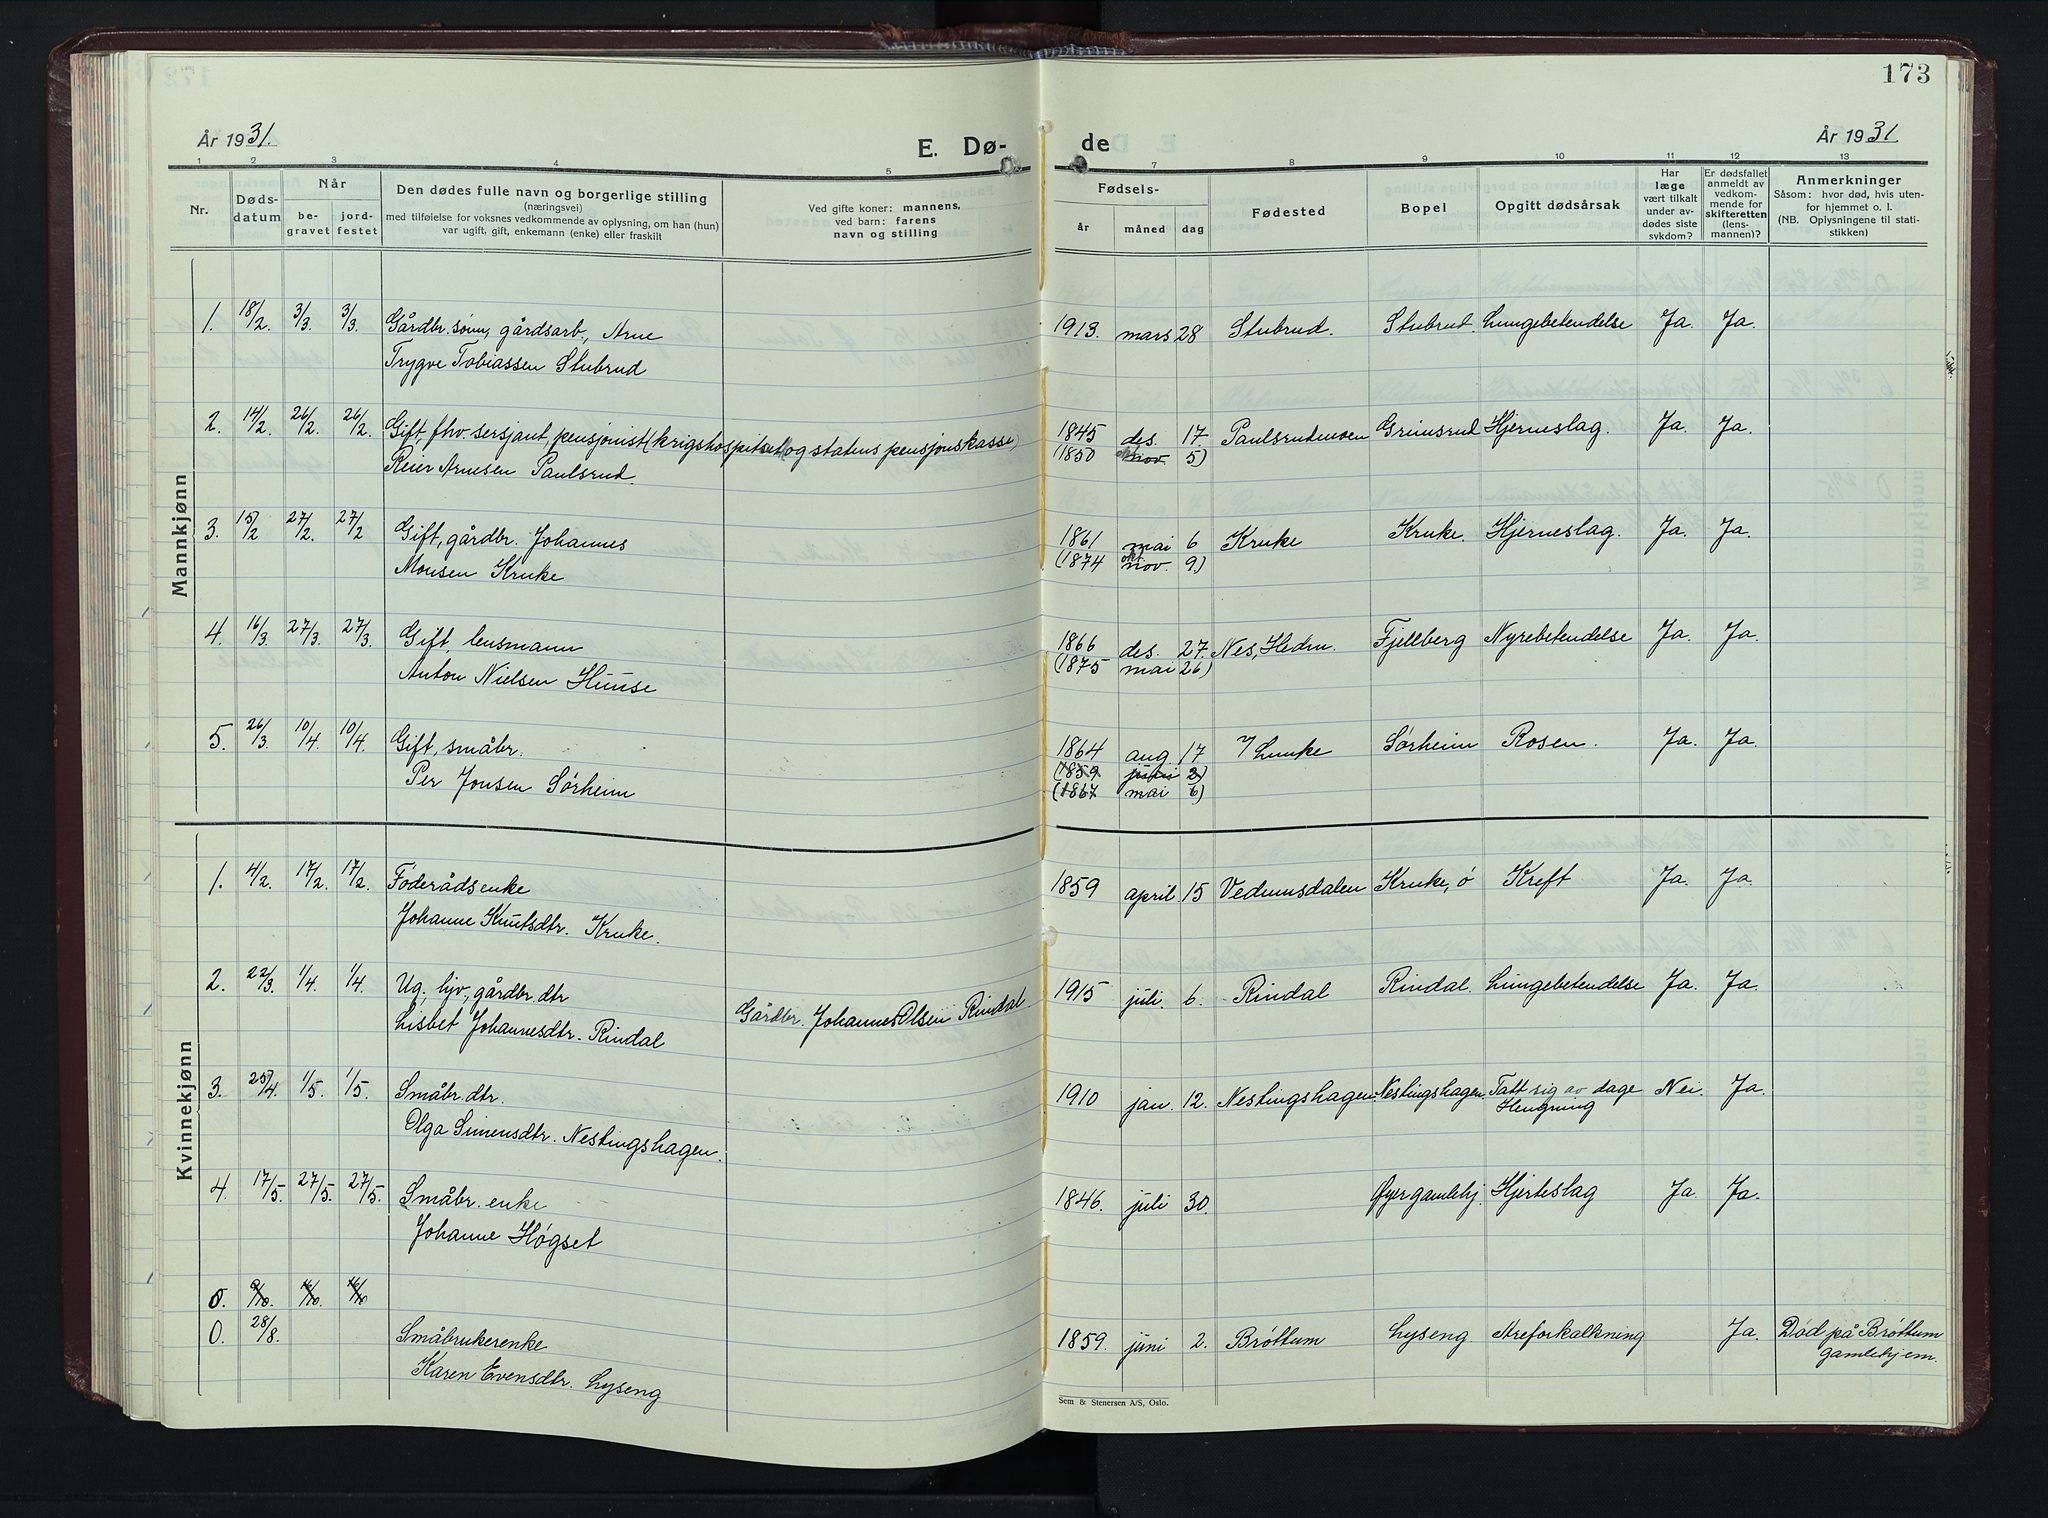 173
År 1931.
E. Dø-
de
År 1931
1 2 3 4 5
7 8 9 10 11 12 13
Nr.
Døds-
datum
Når
be-
gravet
jord-
festet
Den dødes fulle navn og borgerlige stilling
(næringsvei)
med tilføielse for voksnes vedkommende av oplysning, om han (hun)
var ugift, gift, enkemann (enke) eller fraskilt
Ved gifte koner: mannens,
ved barn: farens
navn og stilling
Fødsels-
år måned dag
Fødested
Bopel
Opgitt dødsårsak
Har
læge
vært tilkalt
under av-
dødes siste
sykdom?
Er dødsfallet
anmeldt av
vedkom-
mende for
skifteretten
(lens-
mannen)?
Anmerkninger
Såsom: hvor død, hvis uten-
for hjemmet o. l.
(NB. Oplysningene til stati-
stikken)
Mannkjønn
1. 18/2. 3/3. 3/3. Gårdbr. sønn, gårdsarb., Arne 1913. mars 28 Stubrud. Stubrud. Lungebetendelse Ja. Ja.
Trygve Tobiassen Stubrud
2. 14/2. 26/2. 26/2. Gift, fhv. sersjant, pensjonist (krigshospitset og statens pensjonskasse) 1845 des. 17. Paulsrudmoen Grimsrud Hjerneslag. Ja. Ja.
Reier Arnesen Paulsrud. (1850 okt. nov 5)
3. 15/2 27/2. 27/2 Gift, gårdbr. Johannes 1861 mai 6 Kruke Kruke. Hjerneslag. Ja. Ja.
Monsen Kruke (1874 okt nov. 9)
4. 16/3 27/3. 27/3 Gift, lensmann 1866 des. 27. Nes, Hedm. Fjellberg Nyrebetendelse Ja. Ja.
Anton Nielsen Huuse (1875 mai 26)
5. 26/3. 10/4. 10/4. Gift, småbr. 1864 aug. 17 Lunke Sørheim Rosen. Ja. Ja.
Per Jonsen Sørheim (1859 juni 2)
(1867 mai 6)
Kvinnekjønn
1. 4/2. 17/2. 17/2. Føderådsenke 1859 april 15 Vedumsdalen Kruke, ø Kreft Ja. Ja.
Johanne Knutsdtr. Kruke.
2. 22/3. 1/4. 1/4. Ug., hjv., gårdbr. dtr 1915 juli 6. Rindal Rindal. Lungebetendelse Ja. Ja.
Lisbet Johannesdtr. Rindal Gårdbr. Johannes Olsen Rindal
3. 25/4. 1/5. 1/5. Småbr. dtr. 1910 jan. 12. Nestingshagen Nestingshagen. Tatt sig av dage Nei. Ja.
Hengning
Olga Simensdtr. Nestingshagen.
4. 17/5. 27/5. 27/5. Småbr. enke 1846. juli 30. Øyer gamlehj. Hjerteslag Ja. Ja.
Johanne Høgset
5. 9/10. 16/10. 16/10
0. 28/8. Småbrukerenke 1859. juni 2. Brøttum Lyseng Areforkalkning Ja. Død på Brøttum
gamlehjem.
Karen Evensdtr. Lyseng
Sem & Stenersen A/S, Oslo.